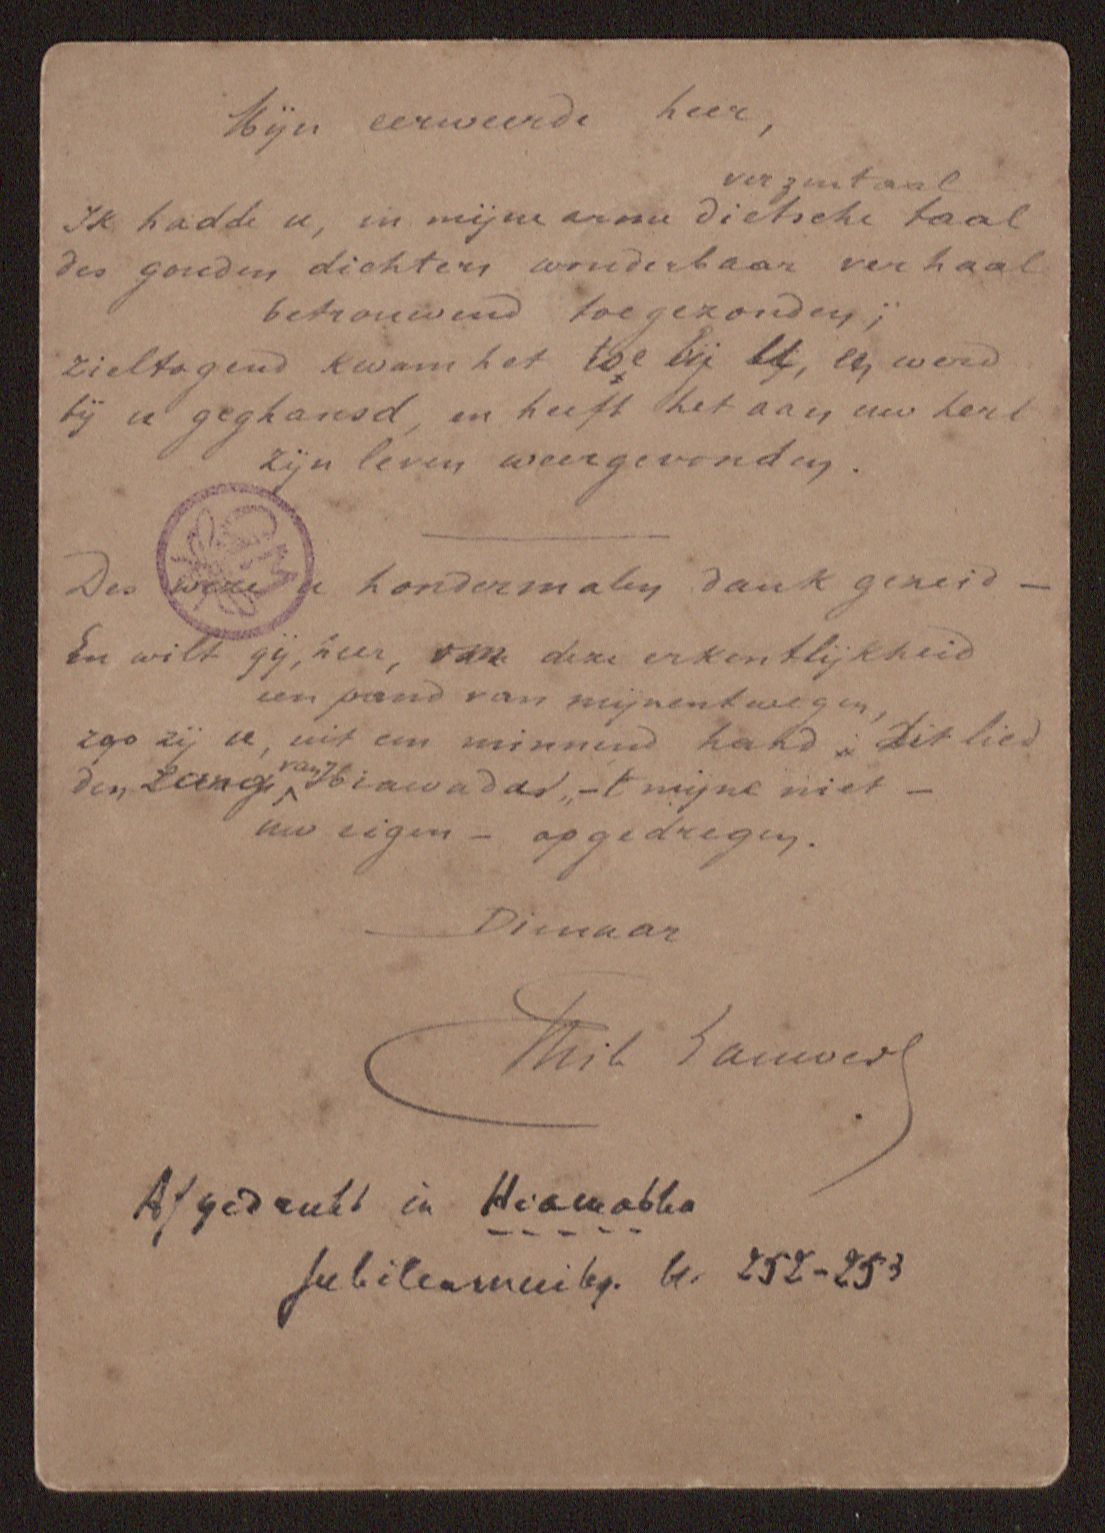 Mijn eerweerde heer,
verzentaal
Ik hadde u, in mijne arme dietsche taal
des gouden dichters wonderbaar verhaal
betrouwend toegezonden;
zieltogend kwam het toe bij U, en werd
bij u geghansd, en heeft het aan uw hert
zijn leven weergevonden.
Des weze u hondermalen dank gezeid —
En wilt gij, heer, van deze erkentlijkheid
een pand van mijnentwegen,
zoo zij u, uit een minnend hand: Dit lied
den zang van Hiawadas, - 't mijne niet -
uw eigen - opgedregen.
Dienaar
Guido
Afgedrukt in Hiawatha
Jubileumuitg. bl. 252-253